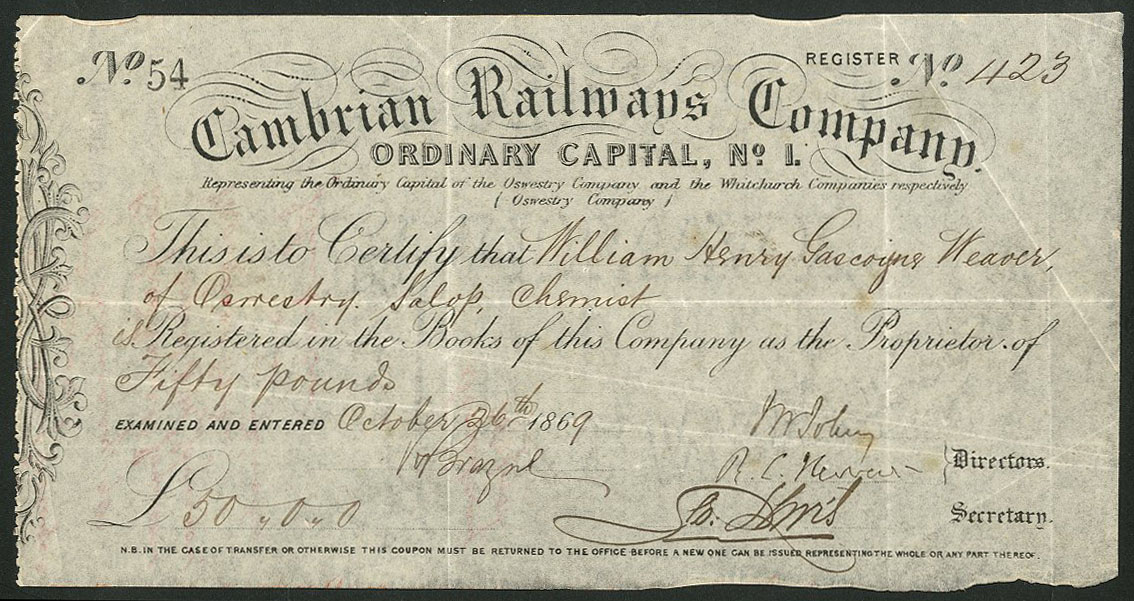 No. 54
REGISTER No. 423
Cambrian Railways Company.
ORDINARY CAPITAL, No. 1.
Representing the Ordinary Capital of the Oswestry Company and the Whitchurch Companies respectively
( Oswestry Company )
This is to Certify that William Henry Gascoigne Weaver,
of Oswestry. Salop, Chemist
is Registered in the Books of this Company as the Proprietor of
Fifty pounds
EXAMINED AND ENTERED October 26th 1869
Directors.
£50 ,, 0 ,, 0
Secretary.
N.B. IN THE CASE OF TRANSFER OR OTHERWISE THIS COUPON MUST BE RETURNED TO THE OFFICE BEFORE A NEW ONE CAN BE ISSUED REPRESENTING THE WHOLE OR ANY PART THEREOF.